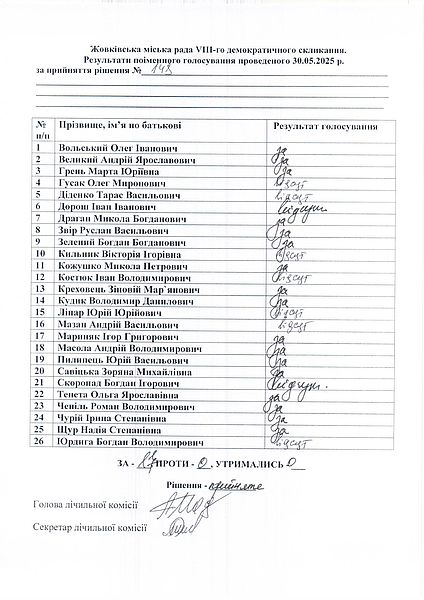 Жовківська міська рада VIII-го демократичного скликання.
Результати поіменного голосування проведеного 30.05.2025 р.
за прийняття рішення №
№ п/п Прізвище, ім’я по батькові Результат голосування
1 Вольський Олег Іванович за
2 Великий Андрій Ярославович за
3 Грень Марта Юріївна за
4 Гусак Олег Миронович відсут
5 Діденко Тарас Васильович відсут
6 Дорош Іван Іванович
7 Драган Микола Богданович за
8 Звір Руслан Васильович за
9 Зелений Богдан Богданович за
10 Кильник Вікторія Ігорівна відсут
11 Кожушко Микола Петрович за
12 Костюк Іван Володимирович відсут
13 Креховець Зіновій Мар`янович за
14 Кудик Володимир Данилович за
15 Ліпар Юрій Юрійович відсут
16 Мазан Андрій Васильович відсут
17 Мариняк Ігор Григорович за
18 Масола Андрій Володимирович за
19 Пилипець Юрій Васильович за
20 Савіцька Зоряна Михайлівна за
21 Скоропад Богдан Ігорович
22 Тенета Ольга Ярославівна за
23 Чепіль Роман Володимирович за
24 Чурій Ірина Степанівна за
25 Щур Надія Степанівна за
26 Юрдига Богдан Володимирович відсут
ЗА - ПРОТИ - 0, УТРИМАЛИСЬ 0
Рішення - прийняте
Голова лічильної комісії
Секретар лічильної комісії